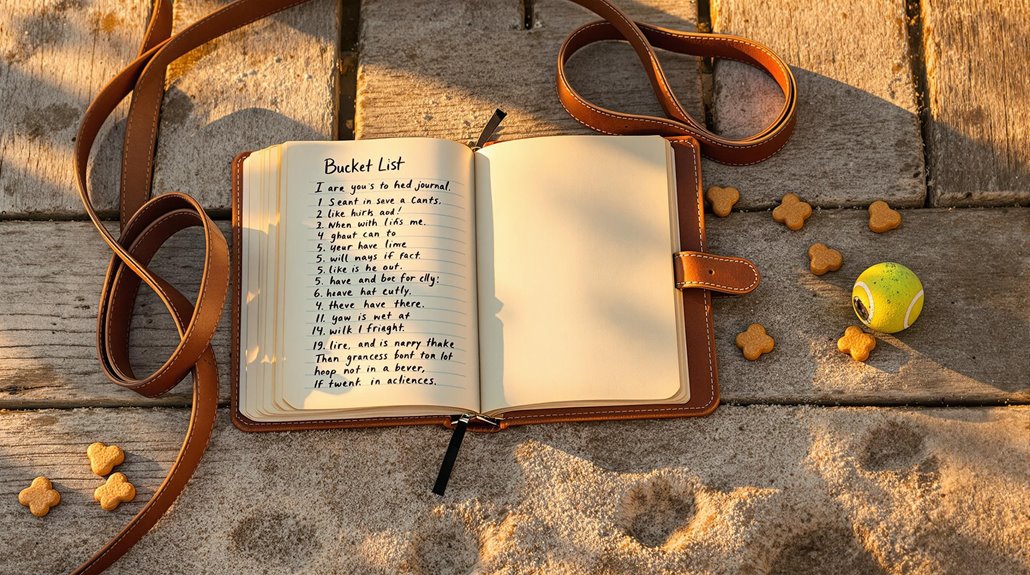 Bucket List
I are you's to hed journal.
1 Seant in save a Cants.
2 like hiırks aod!
3. Nhen with lifis me.
4 ghaut can to
5. yeur have lime
5. will mays if fact.
5. like is he out.
5. have and boe for clly:
6. heave hat cutly.
4. theve have there.
11. yaw is wet at
14. wilk I fright.
19. lire, and is nappy thake
Than grancess bont tor lot
hoop not in a bever,
If twent in acliences.